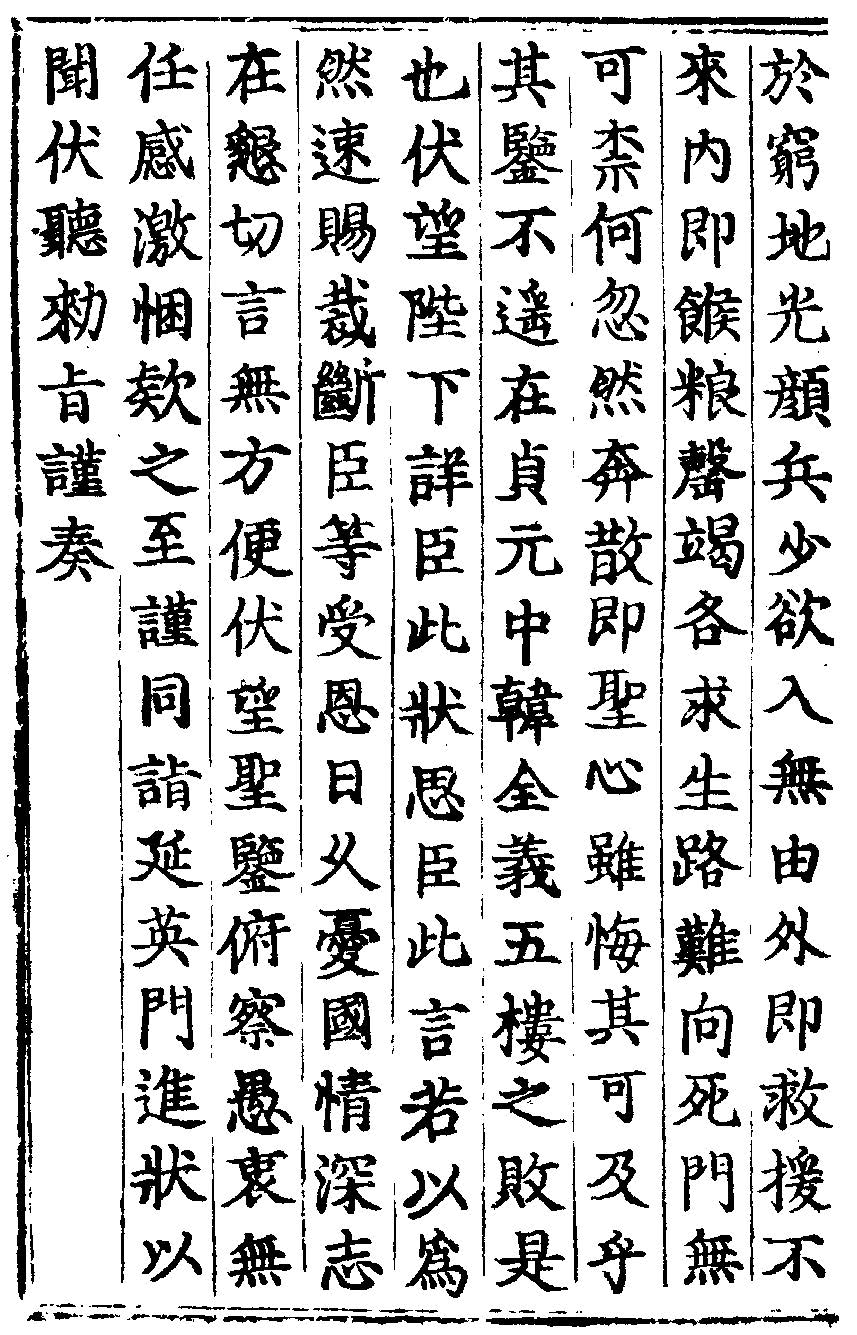 於窮地光顔兵少欲入無由外即救援不
來內即餱粮罄竭各求生路難向死門無
可柰何忽然奔散即聖心雖悔其可及乎
其鑒不遥在貞元中韓全義五樓之敗是
也伏望陛下詳臣此狀思臣此言若以爲
然速賜裁斷臣等受恩日久憂國情深志
在懇切言無方便伏望聖鑒俯察愚衷無
任感激悃欵之至謹同詣延英門進狀以
聞伏聽勑旨謹奏